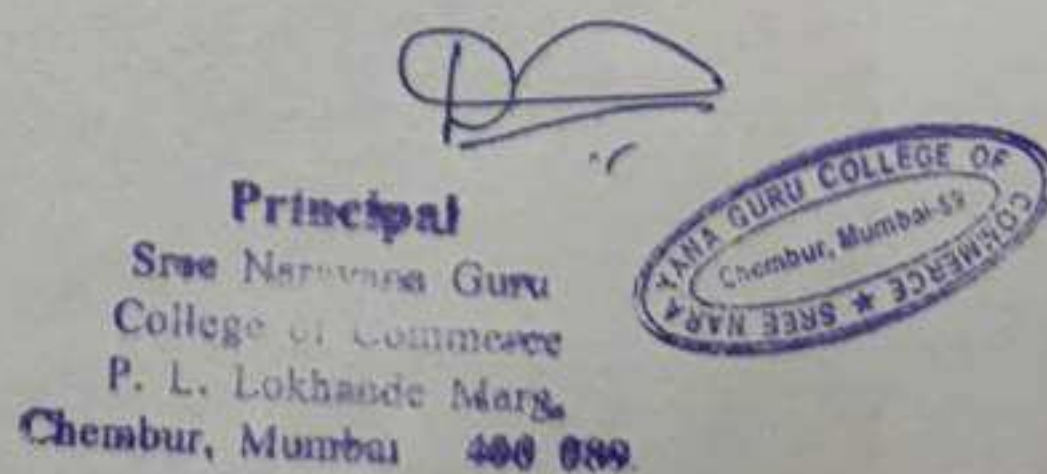 Principal
Sree Narayana Guru
College of Commerce
P. L. Lokhande Marg,
Chembur, Mumbai 400 089.
SREE NARAYANA GURU COLLEGE OF COMMERCE ★
Chembur, Mumbai-89